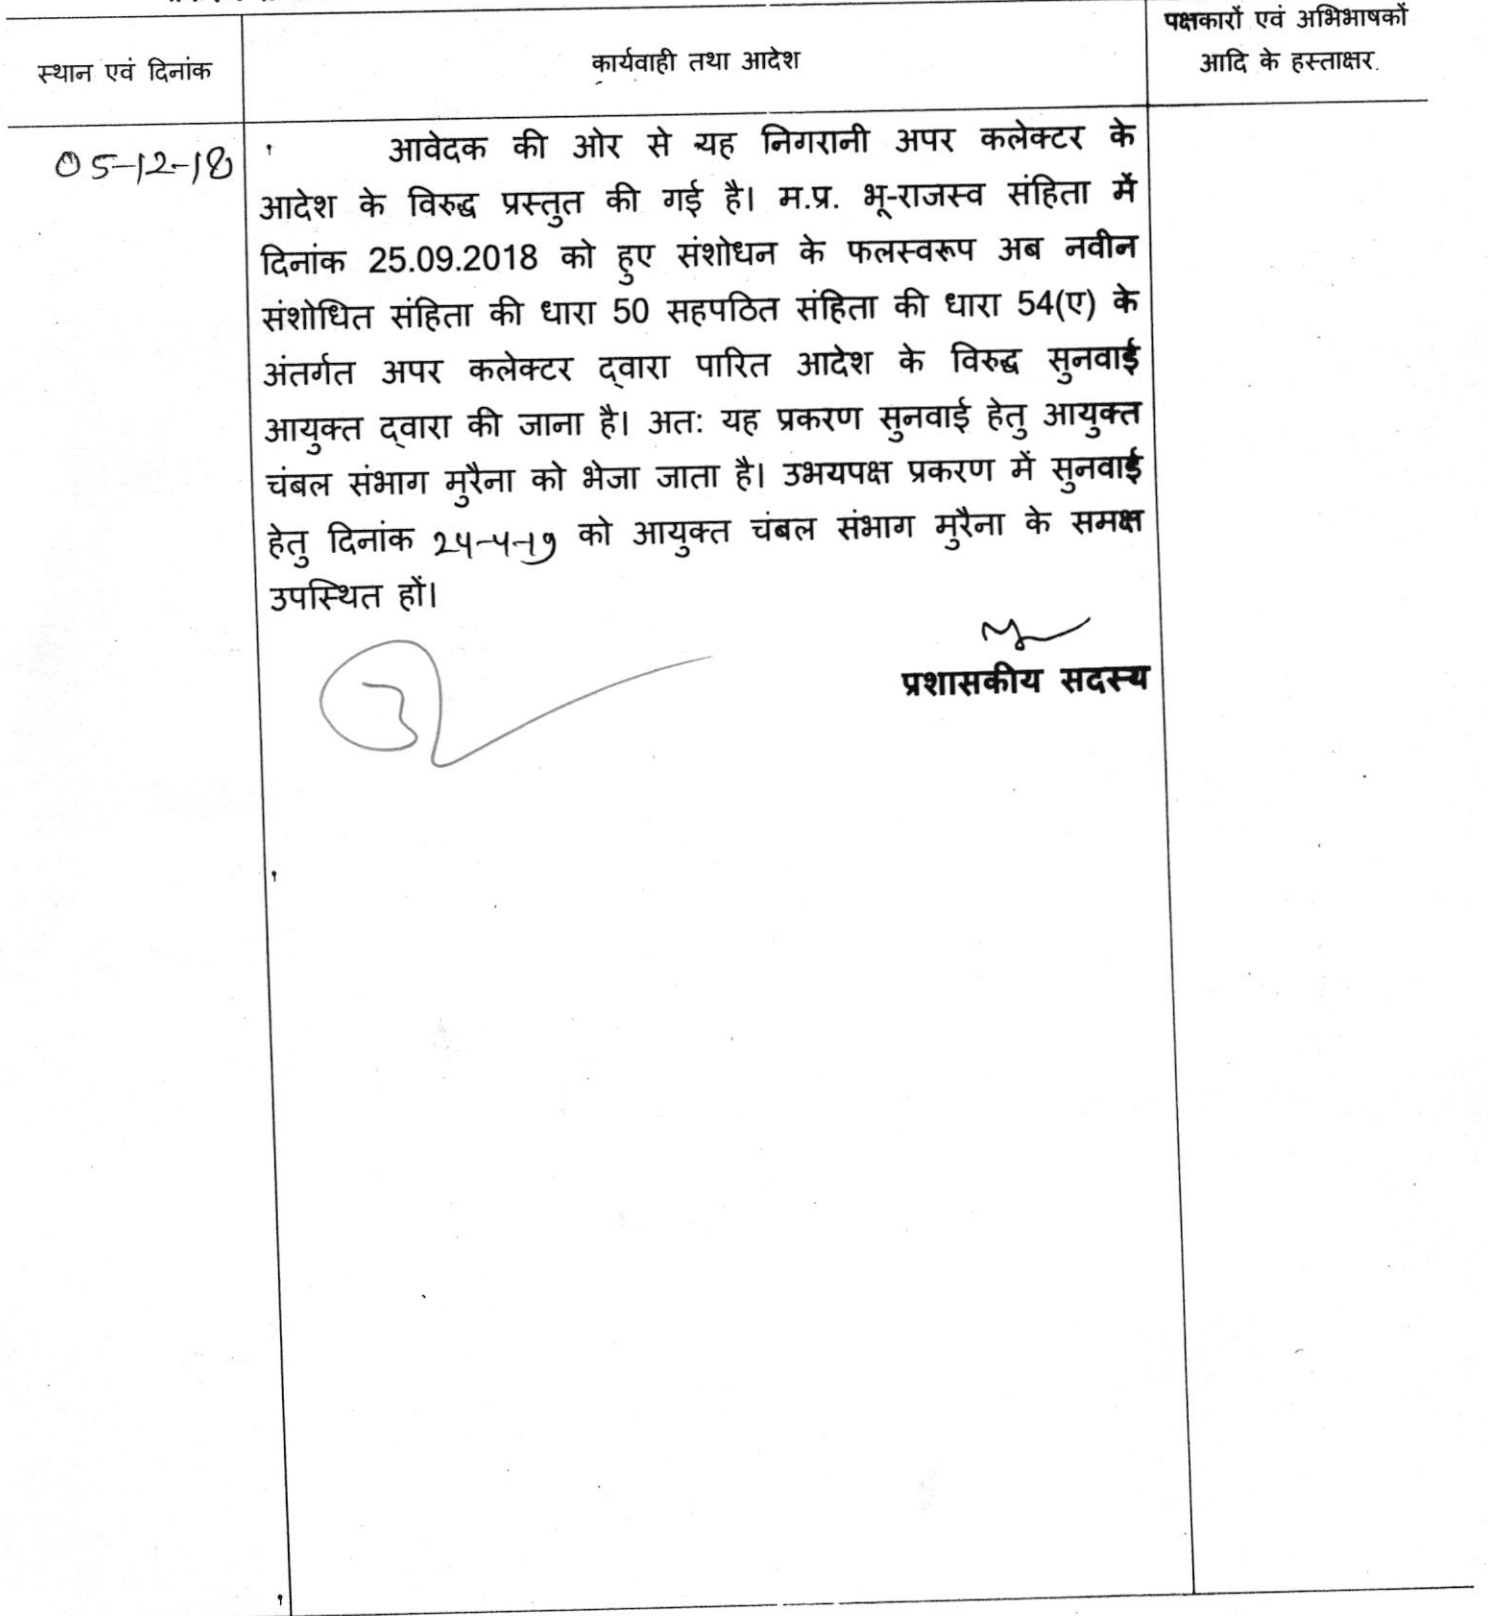 पक्षकारों एवं अभिभाषकों
आदि के हस्ताक्षर.
स्थान एवं दिनांक
कार्यवाही तथा आदेश
05-12-18
आवेदक की ओर से यह निगरानी अपर कलेक्टर के
आदेश के विरुद्ध प्रस्तुत की गई है। म.प्र. भू-राजस्व संहिता में
दिनांक 25.09.2018 को हुए संशोधन के फलस्वरूप अब नवीन
संशोधित संहिता की धारा 50 सहपठित संहिता की धारा 54(ए) के
अंतर्गत अपर कलेक्टर द्वारा पारित आदेश के विरुद्ध सुनवाई
आयुक्त द्वारा की जाना है। अतः यह प्रकरण सुनवाई हेतु आयुक्त
चंबल संभाग मुरैना को भेजा जाता है। उभयपक्ष प्रकरण में सुनवाई
हेतु दिनांक 24-4-19 को आयुक्त चंबल संभाग मुरैना के समक्ष
उपस्थित हों।
प्रशासकीय सदस्य